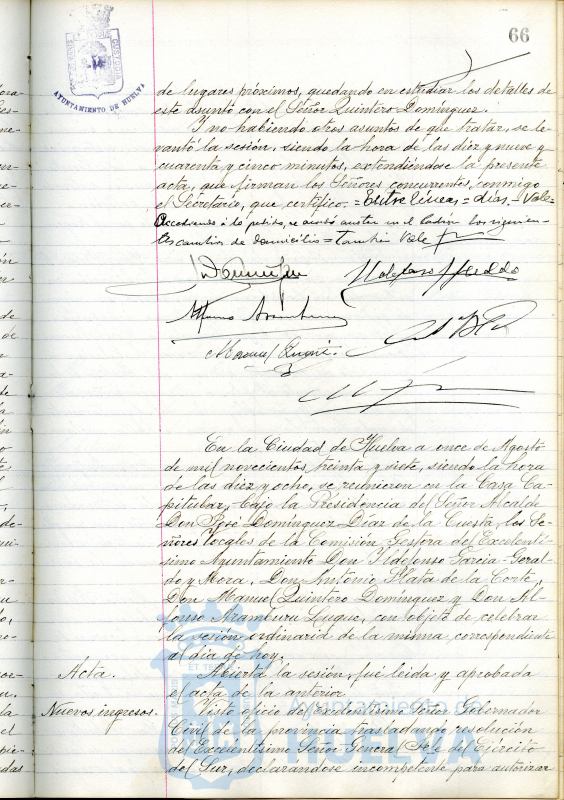 66
AYUNTAMIENTO DE HUELVA
de lugares próximos, quedando en estudiar los detalles de
este asunto con el Señor Quintero Domínguez.
Y no habiendo otros asuntos de que tratar, se le-
vantó la sesión, siendo la hora de las diez y nueve y
cuarenta y cinco minutos, extendiéndose la presente
acta, que firman los Señores concurrentes, conmigo
el Secretario, que certifico.=Entre líneas=dias,=Vale=
Accediendo á lo pedido, se
cambios de domicilios=También Vale
Manuel
En la Ciudad de Huelva a once de Agosto
de mil novecientos treinta y siete, siendo la hora
de las diez y ocho, se reunieron en la Casa Ca-
pitular, bajo la Presidencia del Señor Alcalde
Don José Domínguez Díaz de la Cuesta, los Se-
ñores Vocales de la Comisión Gestora del Excelentí-
simo Ayuntamiento Don Ildefonso García-Geral-
do y Mora, Don Antonio Plata de la Corte,
Don Manuel Quintero Domínguez y Don Al-
fonso Aramburu Luque, con objeto de celebrar
la sesión ordinaria de la misma correspondiente
al día de hoy.
Acta. Abierta la sesión, fué leida y aprobada
el acta de la anterior.
Nuevos ingresos. Visto oficio del Excelentísimo Señor Gobernador
Civil de la provincia trasladando resolución
del Excelentísimo Señor General Jefe del Ejército
del Sur, declarándose incompetente para autorizar
Ayuntamiento de
HUELVA